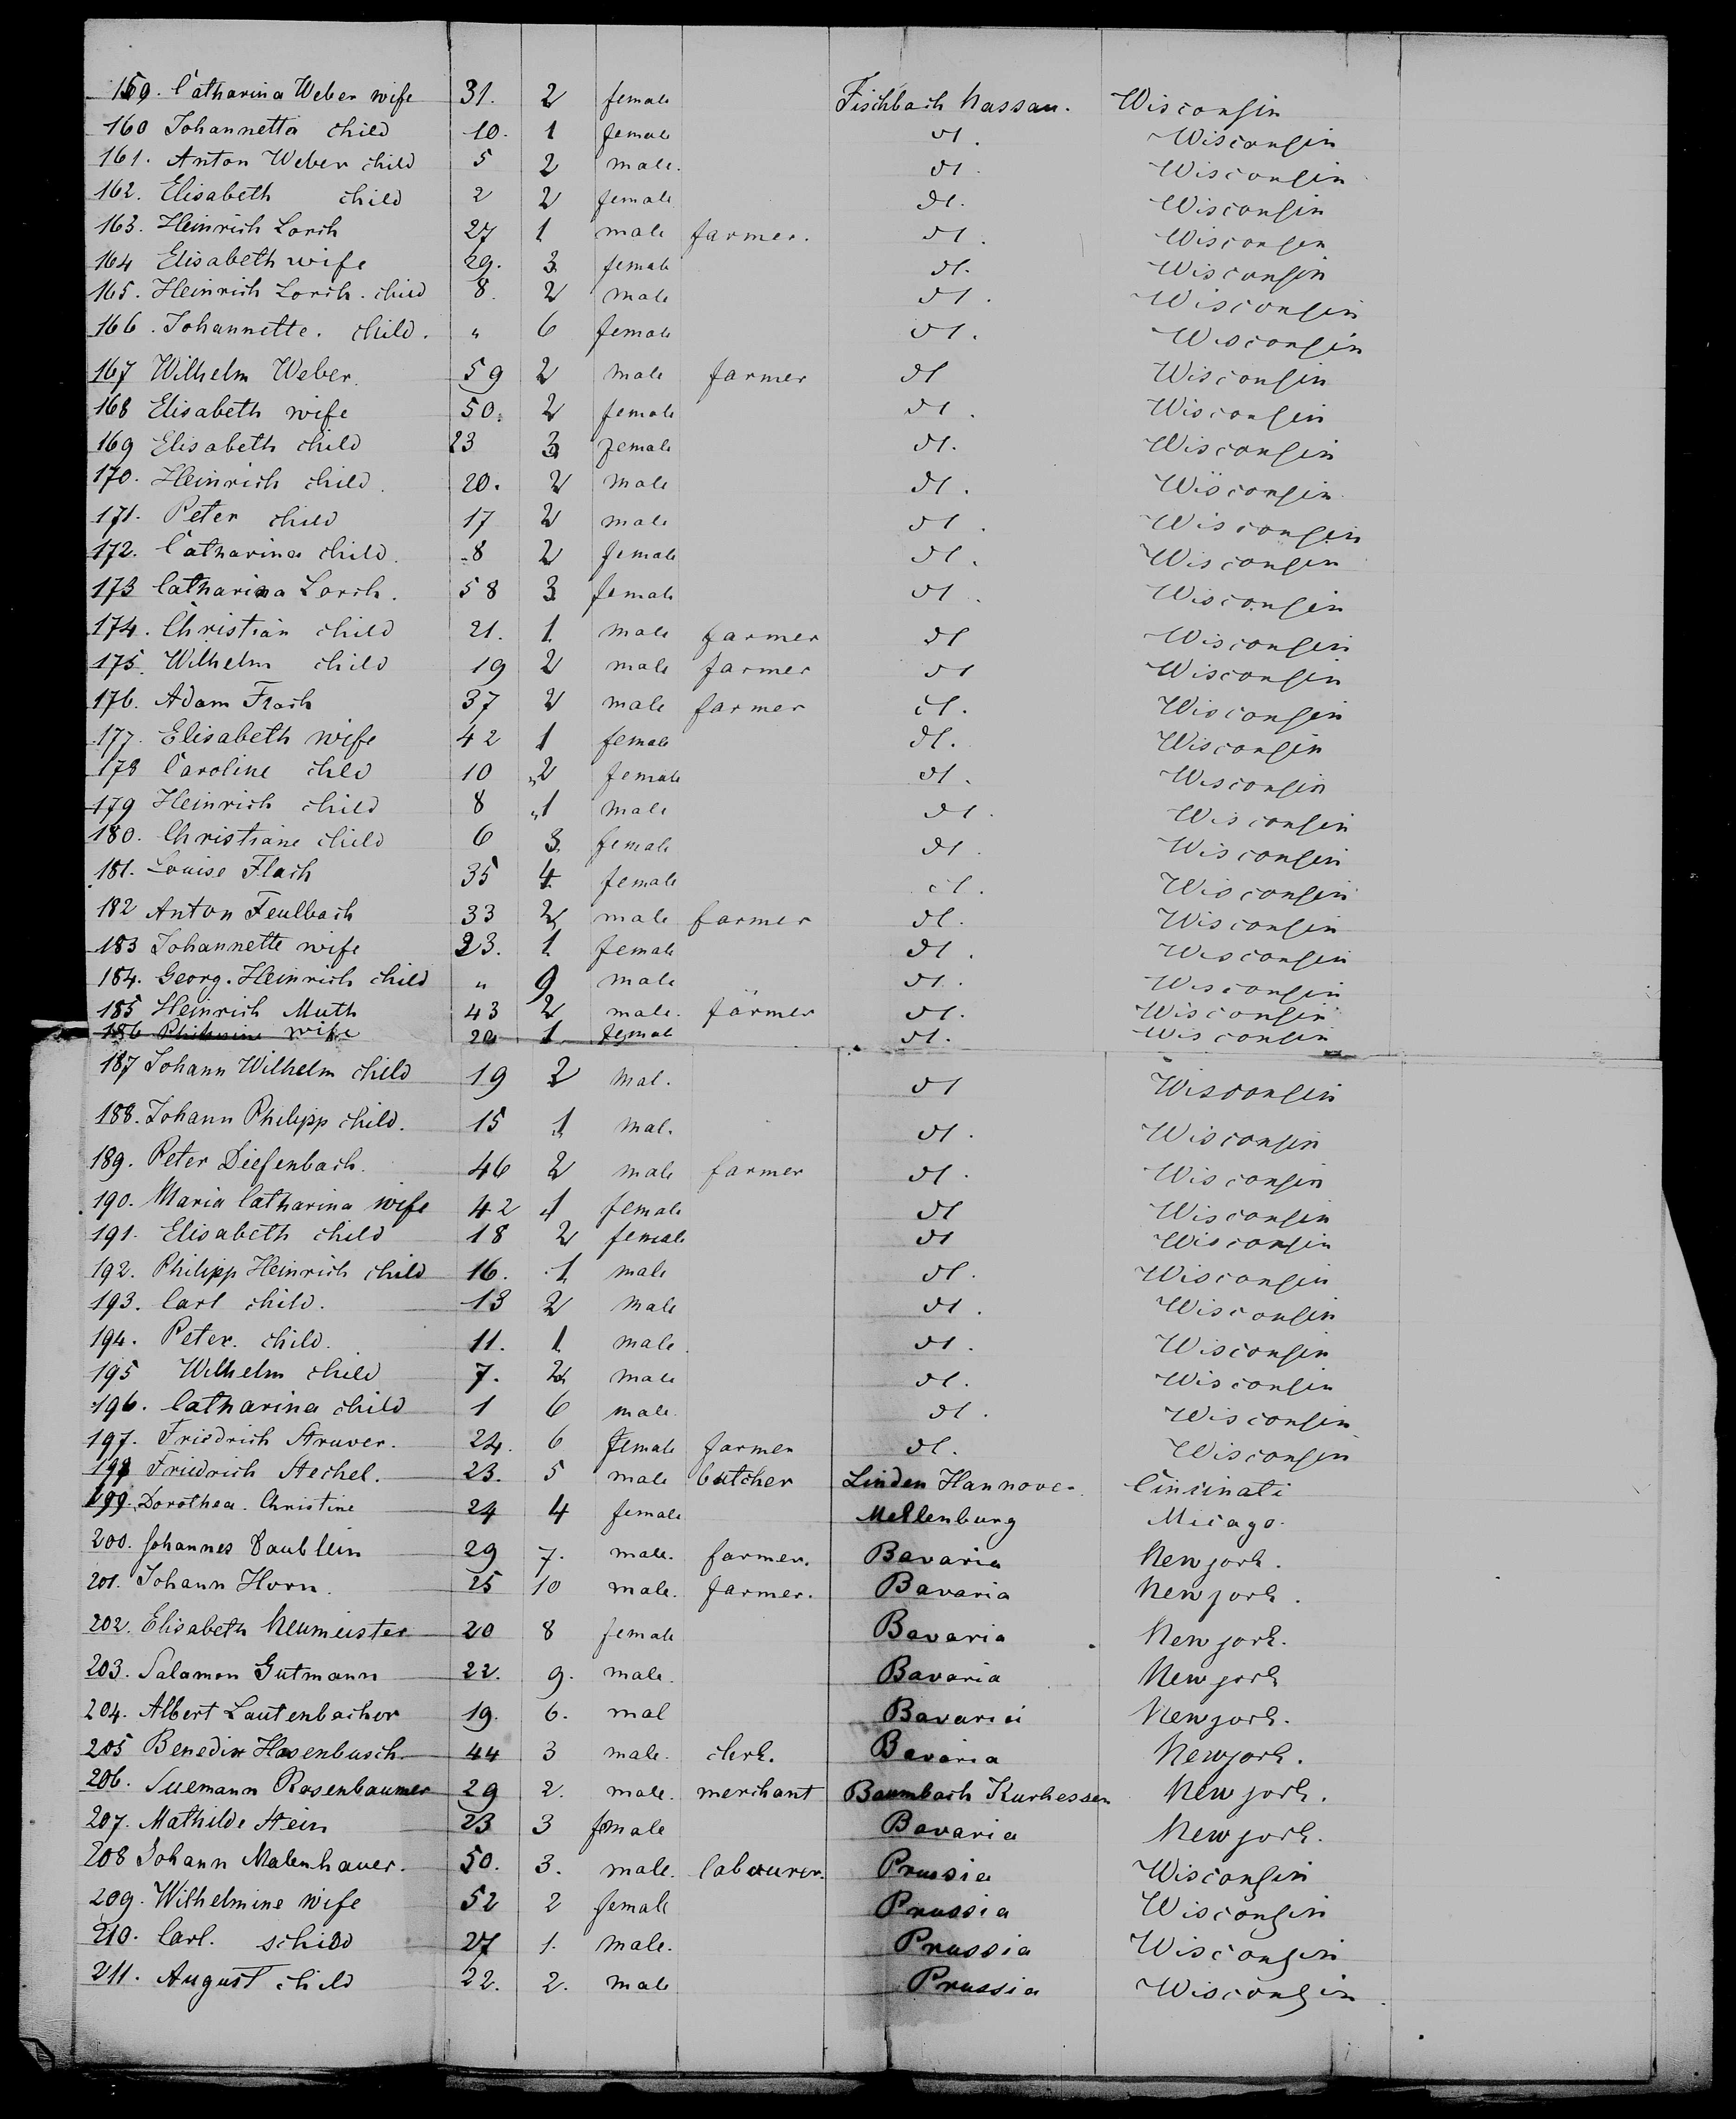 159. Catharina Weber wife 31. 2 female Fischbach Nassau. Wisconsin
160 Johannetta child 10. 1 female dl. Wisconsin
161. Anton Weber child 5 2 male. dl. Wisconsin
162. Elisabeth child 2 2 female dl. Wisconsin
163. Heinrich Lorch 27 1 male farmer. dl. Wisconsin
164 Elisabeth wife 29. 3 female dl. Wisconsin
165. Heinrich Lorch. child 8. 2 male dl. Wisconsin
166. Johannette. child. " 6 female dl. Wisconsin
167 Wilhelm Weber. 59 2 male farmer dl Wisconsin
168 Elisabeth wife 50. 2 female dl. Wisconsin
169 Elisabeth child 23 3 female dl. Wisconsin
170. Heinrich child. 20. 2 male dl. Wisconsin
171. Peter child 17 2 male dl. Wisconsin
172. Catharina child. 8 2 female dl. Wisconsin
173 Catharina Lorch. 58 3 female dl. Wisconsin
174. Christian child 21. 1 male farmer dl Wisconsin
175. Wilhelm child 19 2 male farmer dl Wisconsin
176. Adam Flach 37 2 male farmer dl. Wisconsin
177. Elisabeth wife 42 1 female dl. Wisconsin
178 Caroline child 10 2 female dl. Wisconsin
179 Heinrich child 8 1 male dl. Wisconsin
180. Christiane child 6 3 female dl. Wisconsin
181. Louise Flach 35 4 female dl. Wisconsin
182 Anton Feulbach 33 2 male farmer dl. Wisconsin
183 Johannette wife 23. 1 female dl. Wisconsin
184. Georg. Heinrich child " 9 male dl. Wisconsin
185 Heinrich Muth 43 2 male. farmer dl. Wisconsin
186 wife 1 female dl. Wisconsin
187 Johann Wilhelm child 19 2 mal. dl Wisconsin
188. Johann Philipp child. 15 1 mal. dl. Wisconsin
189. Peter Diefenbach. 46 2 male farmer dl. Wisconsin
190. Maria Catharina wife 42 1 female dl Wisconsin
191. Elisabeth child 18 2 female dl Wisconsin
192. Philipp Heinrich child 16. 1 male dl. Wisconsin
193. Carl child. 13 2 male dl. Wisconsin
194. Peter. child. 11. 1 male. dl. Wisconsin
195 Wilhelm child 7. 2 male dl. Wisconsin
196. Catharina child 1 6 male. dl. Wisconsin
197. Friedrich Struver. 24. 6 female farmer dl. Wisconsin
198 Friedrich Stechel. 23. 5 male butcher Linden Hannover. Cincinati
199. Dorothea. Christine 24 4 female Meklenburg Micago.
200. Johannes Taublein 29 7. male. farmer. Bavaria Newjork.
201. Johann Horn. 25 10 male. farmer. Bavaria Newjork.
202. Elisabeth Neumeister 20 8 female Bavaria Newjork.
203. Salamon Gutmann 22. 9. male. Bavaria Newjork
204. Albert Lautenbacher 19. 6. mal Bavaria Newjork.
205 Benedix Hasenbusch 44 3 male. clerk. Bavaria Newjork.
206. Suemann Rosenbaumer 29 2. male. merchant Baumbach Kurhessen Newjork.
207. Mathilde Stein 23 3 female Bavaria Newjork.
208 Johann Malenhauer. 50. 3. male. labourer. Prussia Wisconsin
209. Wilhelmine wife 52 2 female Prussia Wisconsin
210. Carl. schild 27 1. male. Prussia Wisconsin
211. August child 22. 2. male Prussia Wisconsin